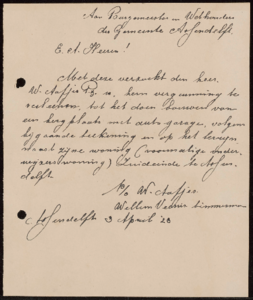 Aan Burgemeester en Wethouders
der Gemeente Assendelft.
E. A. Heeren!
Met deze verzoekt den heer
W. Aafjes u, hem vergunning te
verleenen, tot het doen bouwen van
een bergplaats met auto garage, volgens
bijgaande teekening en op het terrein
naast zijne woning (voormalige onder-
wijzerswoning) Zuideinde te Assen-
delft.
W. Aafjes
Willem timmerman
Assendelft 3 April '28